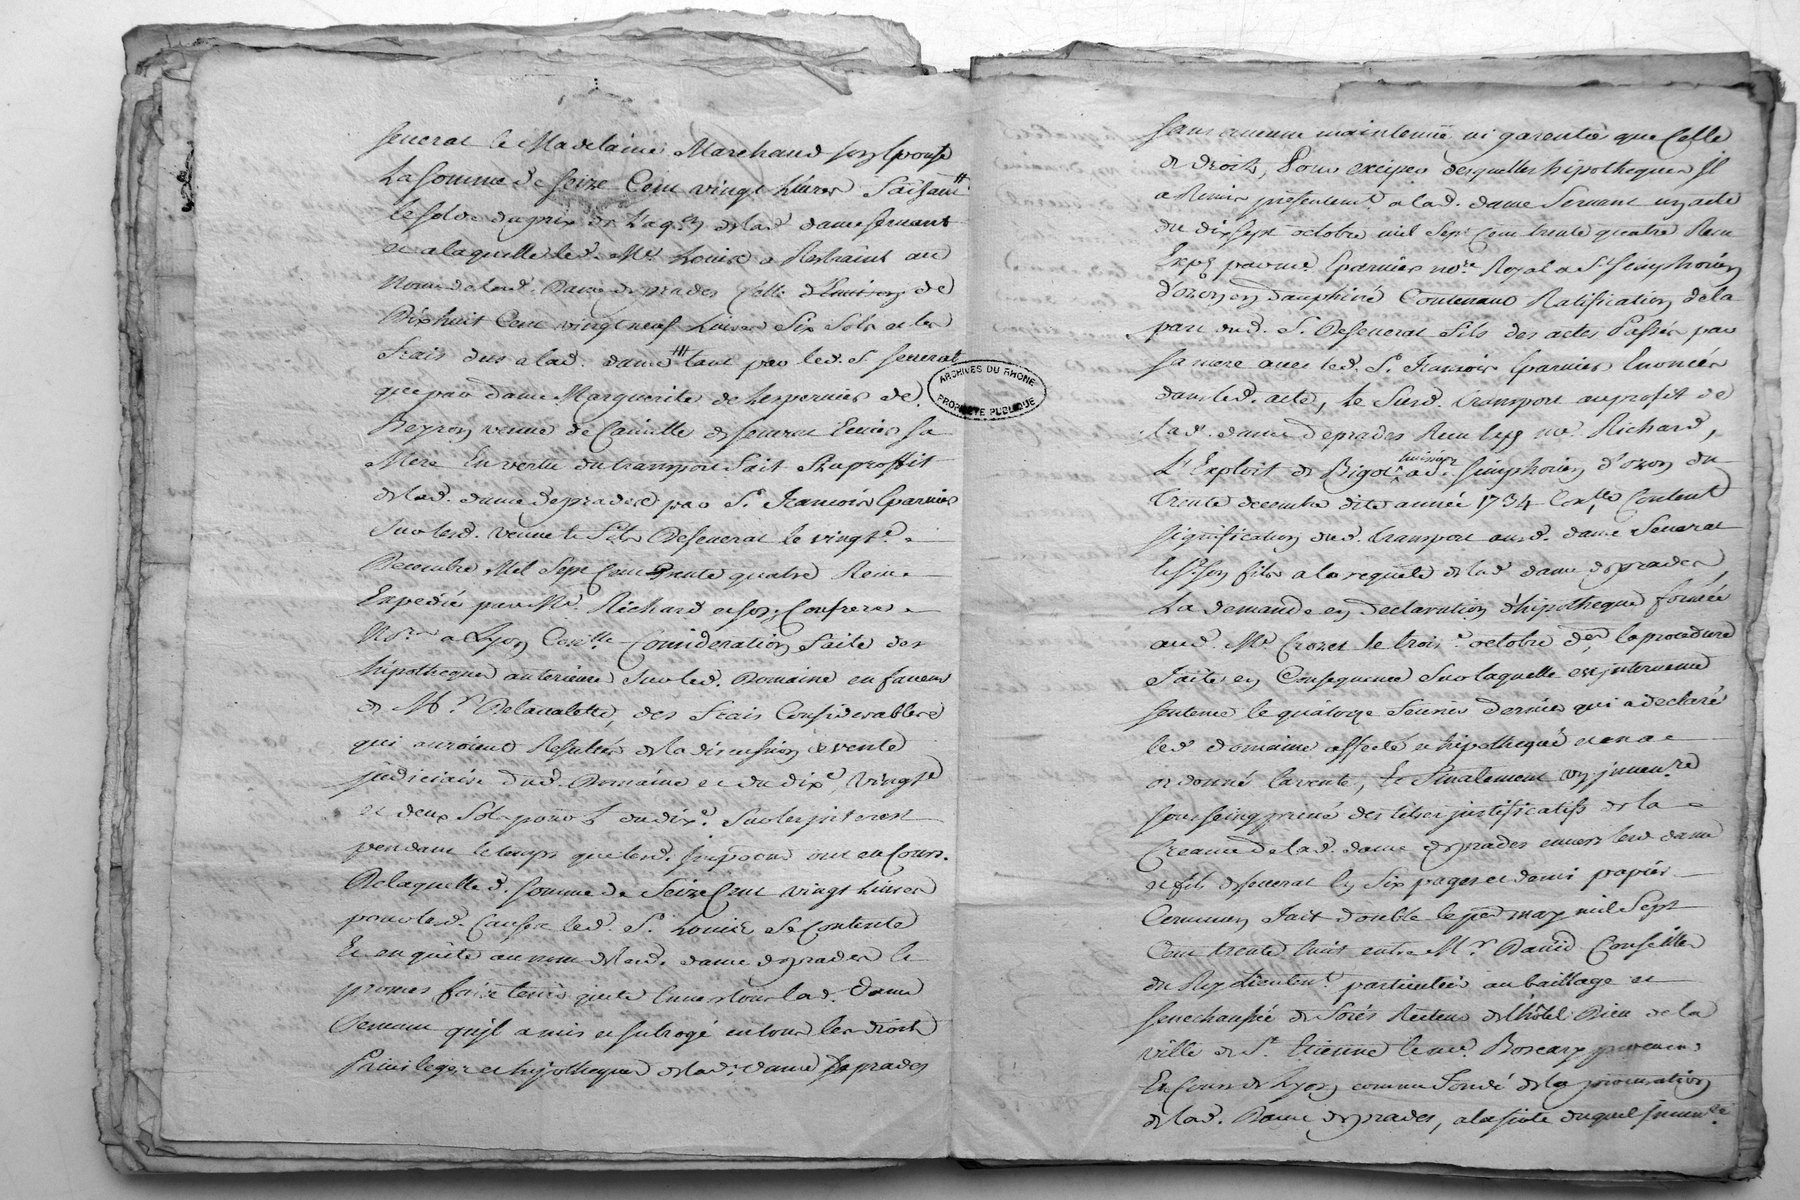 feuerat le Madelaine Marchand son Epouse
La somme de seize Cent vingt Livres faisant
le solde du prix de L'aq.on de lad. dame servant
et a laquelle led. Me. Louis a Restraint au
Nom de lad. Dame desprades celle de
Dixhuit Cent vingt neuf Livres Six Sols et les
frais dus a lad. dame tant par led. S. feuerat
que par dame Marguerite de Lesparnier de
Peyron veuve de Camille de feuerat Ecuier sa
Mere En vertu du transport fait Auproffit
de lad. dame desprades par Sr. francois Eparnier
Sur lesd. veuve & fils De feuerat le vingt e.
Decembre Mil Sept Cent Trente quatre Recu
Expedié par Me. Richard et son Confrere
No.re a Lyon Consideration faite des
hipotheques anterieures Sur led. Domaine en faveur
de Mr. Delavalette, des frais Considerables
qui auroient Resultés de la discussion & vente
judiciaire dud. Domaine et du dixe. vingte
et deux Sols pour L dudixe. Sur les interest
pendant le temps que lesd. impots ont eu Cours.
De laquelle d. somme de Seize Cent vingt Livres
pour lesd. Causes led. Sr. Louis Se Contente
Et en quitte au nom de lad. dame desprades le
promet faire tenir quitte Envers tous lad. Dame
Servant qu'il a mis et subrogé en tous les droits
Privileges et hipotheques de lad. dame Desprades
ARCHIVES DU RHONE
PROPRIETE PUBLIQUE
sans aucune maintenüe ni garentie que Celle
de droit, Pour exciper desquelles hipotheques Il
a Remis presentemt. a lad. dame Servant un acte
du dix sept octobre mil Sept Cent trente quatre Recu
Expé par me. Eparnier no.re Royal a St. Simphorien
d'ozon en Dauphiné Contenant Ratification de la
part dud. S. De feuerat fils des actes Passés par
sa mere avec led. Sr. francois Eparnier Enoncés
dans led. acte, Le Susd. transport au profit de
lad. dame Desprades Recu Exp me. Richard,
L'Exploit de Bigot huissier a St. Simphorien d'ozon du
trente decembre dite année 1734 Con.lle Content
signification dud. transport aud. dame feuerat
& Sr. son fils a la requete de lad. dame desprades
La demande en declaration d'hipotheque formée
aud. Me. Crozet le trois e. octobre d.er la procedure
faite en Consequence Sur laquelle est intervenue
sentence le quatorze feurier dernier qui a declaré
led. domaine affecté et hipothequé et en a
ordonné la vente, Et finalement un inuen.re
sous seing privé des titres justificatifs de la
Creance de lad. dame desprades envers lesd. dame
et fils de feuerat En Six pages et demi papier
Commun fait double le per. may mil Sept
Cent trente huit entre Mr. David Conseiller
du Roy Lieuten.t particulier au baillage et
Senechaussée de forés Recteur de L'hôtel Dieu de la
ville de St. Etienne & me. Boscary procureur
Es Cours de Lyon comme fondé de la procuration
de lad. Dame desprades, a la suite duquel inuen.re